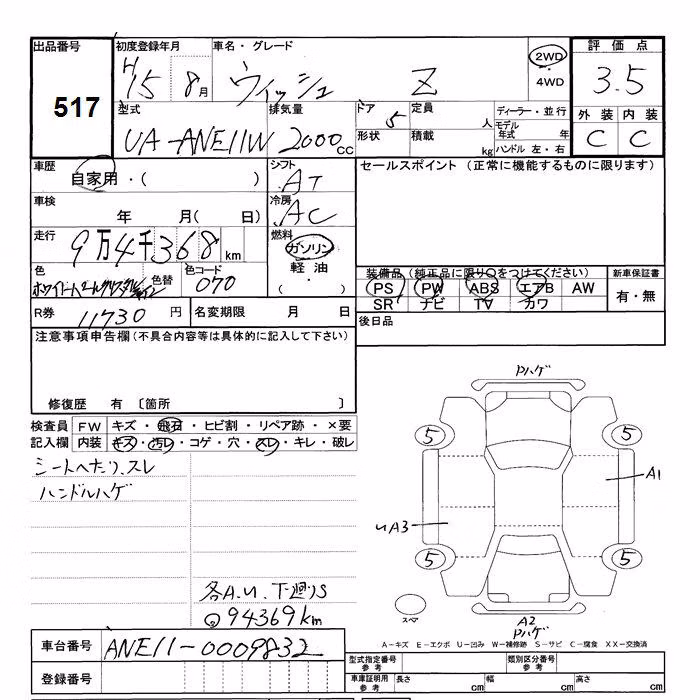 出品番号 初度登録年月 車名・グレード 評価点
517 H15 8月 ウィッシュ Z 2WD 4WD 3.5
型式 排気量 ドア 定員 ディーラー・並行 外装 内装
UA-ANE11W 2000cc 5 人 モデル年式 年 C C
形状 積載 kg ハンドル 左・右
車歴 シフト セールスポイント (正常に機能するものに限ります)
自家用・( ) AT
車検 冷房
年 月( 日) AC
走行 燃料
9万4千368km ガソリン
色 色替 色コード 軽油
070 ( ・ )
装備品(純正品に限り○をつけてください) 新車保証書
PS PW ABS エアB AW 有・無
SR ナビ TV カワ
R券 11730円 名変期限 月 日 後日品
注意事項申告欄(不具合内容等は具体的に記入して下さい)
修復歴 有 〔箇所 〕
検査員 FW キズ・飛石・ヒビ割・リペア跡・×要
記入欄 内装 キズ・汚レ・コゲ・穴・スレ・キレ・破レ
シートヘたり、スレ
ハンドルハゲ
各A.U.下廻りS
94369km
Pハゲ
5 5
A1
UA3
5 5
スペア
A2
Pハゲ
A−キズ E−エクボ U−凹み W−補修跡 S−サビ C−腐食 XX−交換済
車台番号 ANE11-0009832
型式指定番号 参考 類別区分番号 参考
登録番号
車庫証明用 参考 長さ cm 幅 cm 高さ cm